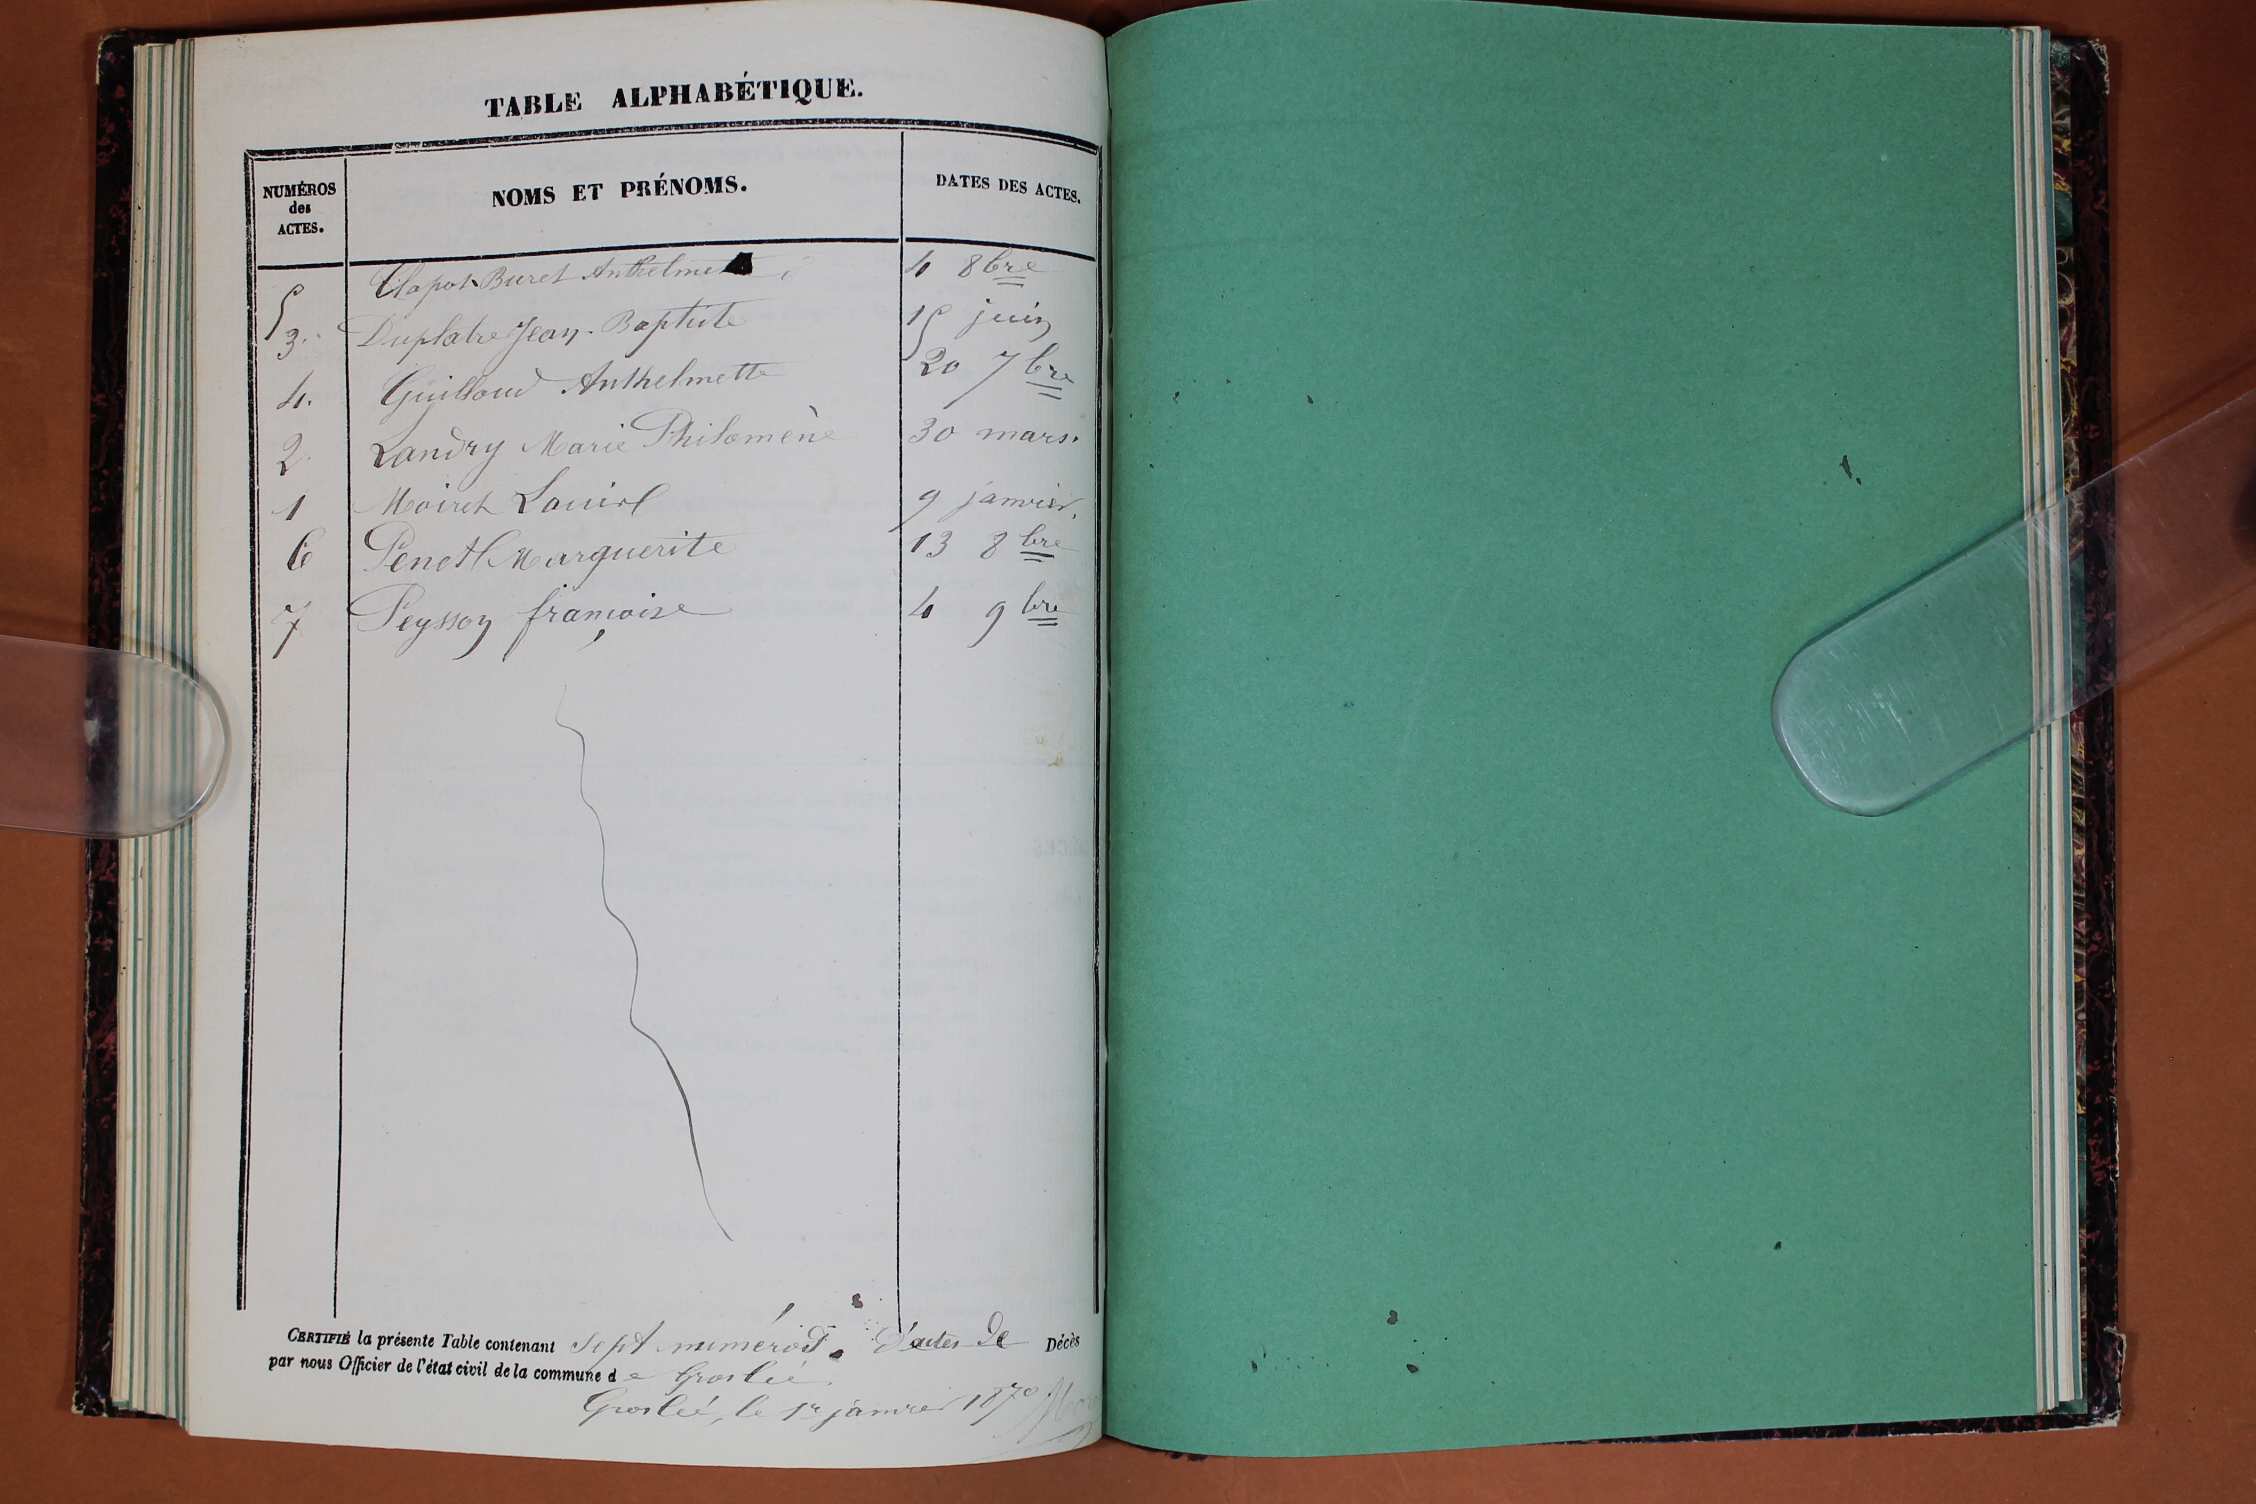 TABLE ALPHABÉTIQUE.
NUMÉROS des ACTES. NOMS ET PRÉNOMS. DATES DES ACTES.
5 Clapot Buret Anthelme 4 8bre
3. Duplatre Jean-Baptiste 15 juin
4. Guilloud Anthelmette 20 7bre
2 Landry Marie Philomène 30 mars.
1 Moiret Louise 9 janvier.
6 Penet Marguerite 13 8bre
7 Peysson françoise 4 9bre
CERTIFIÉ la présente Table contenant sept numéros d'actes de Décès
par nous Officier de l'état civil de la commune de Groslée.
Groslée, le 1r janvier 1870